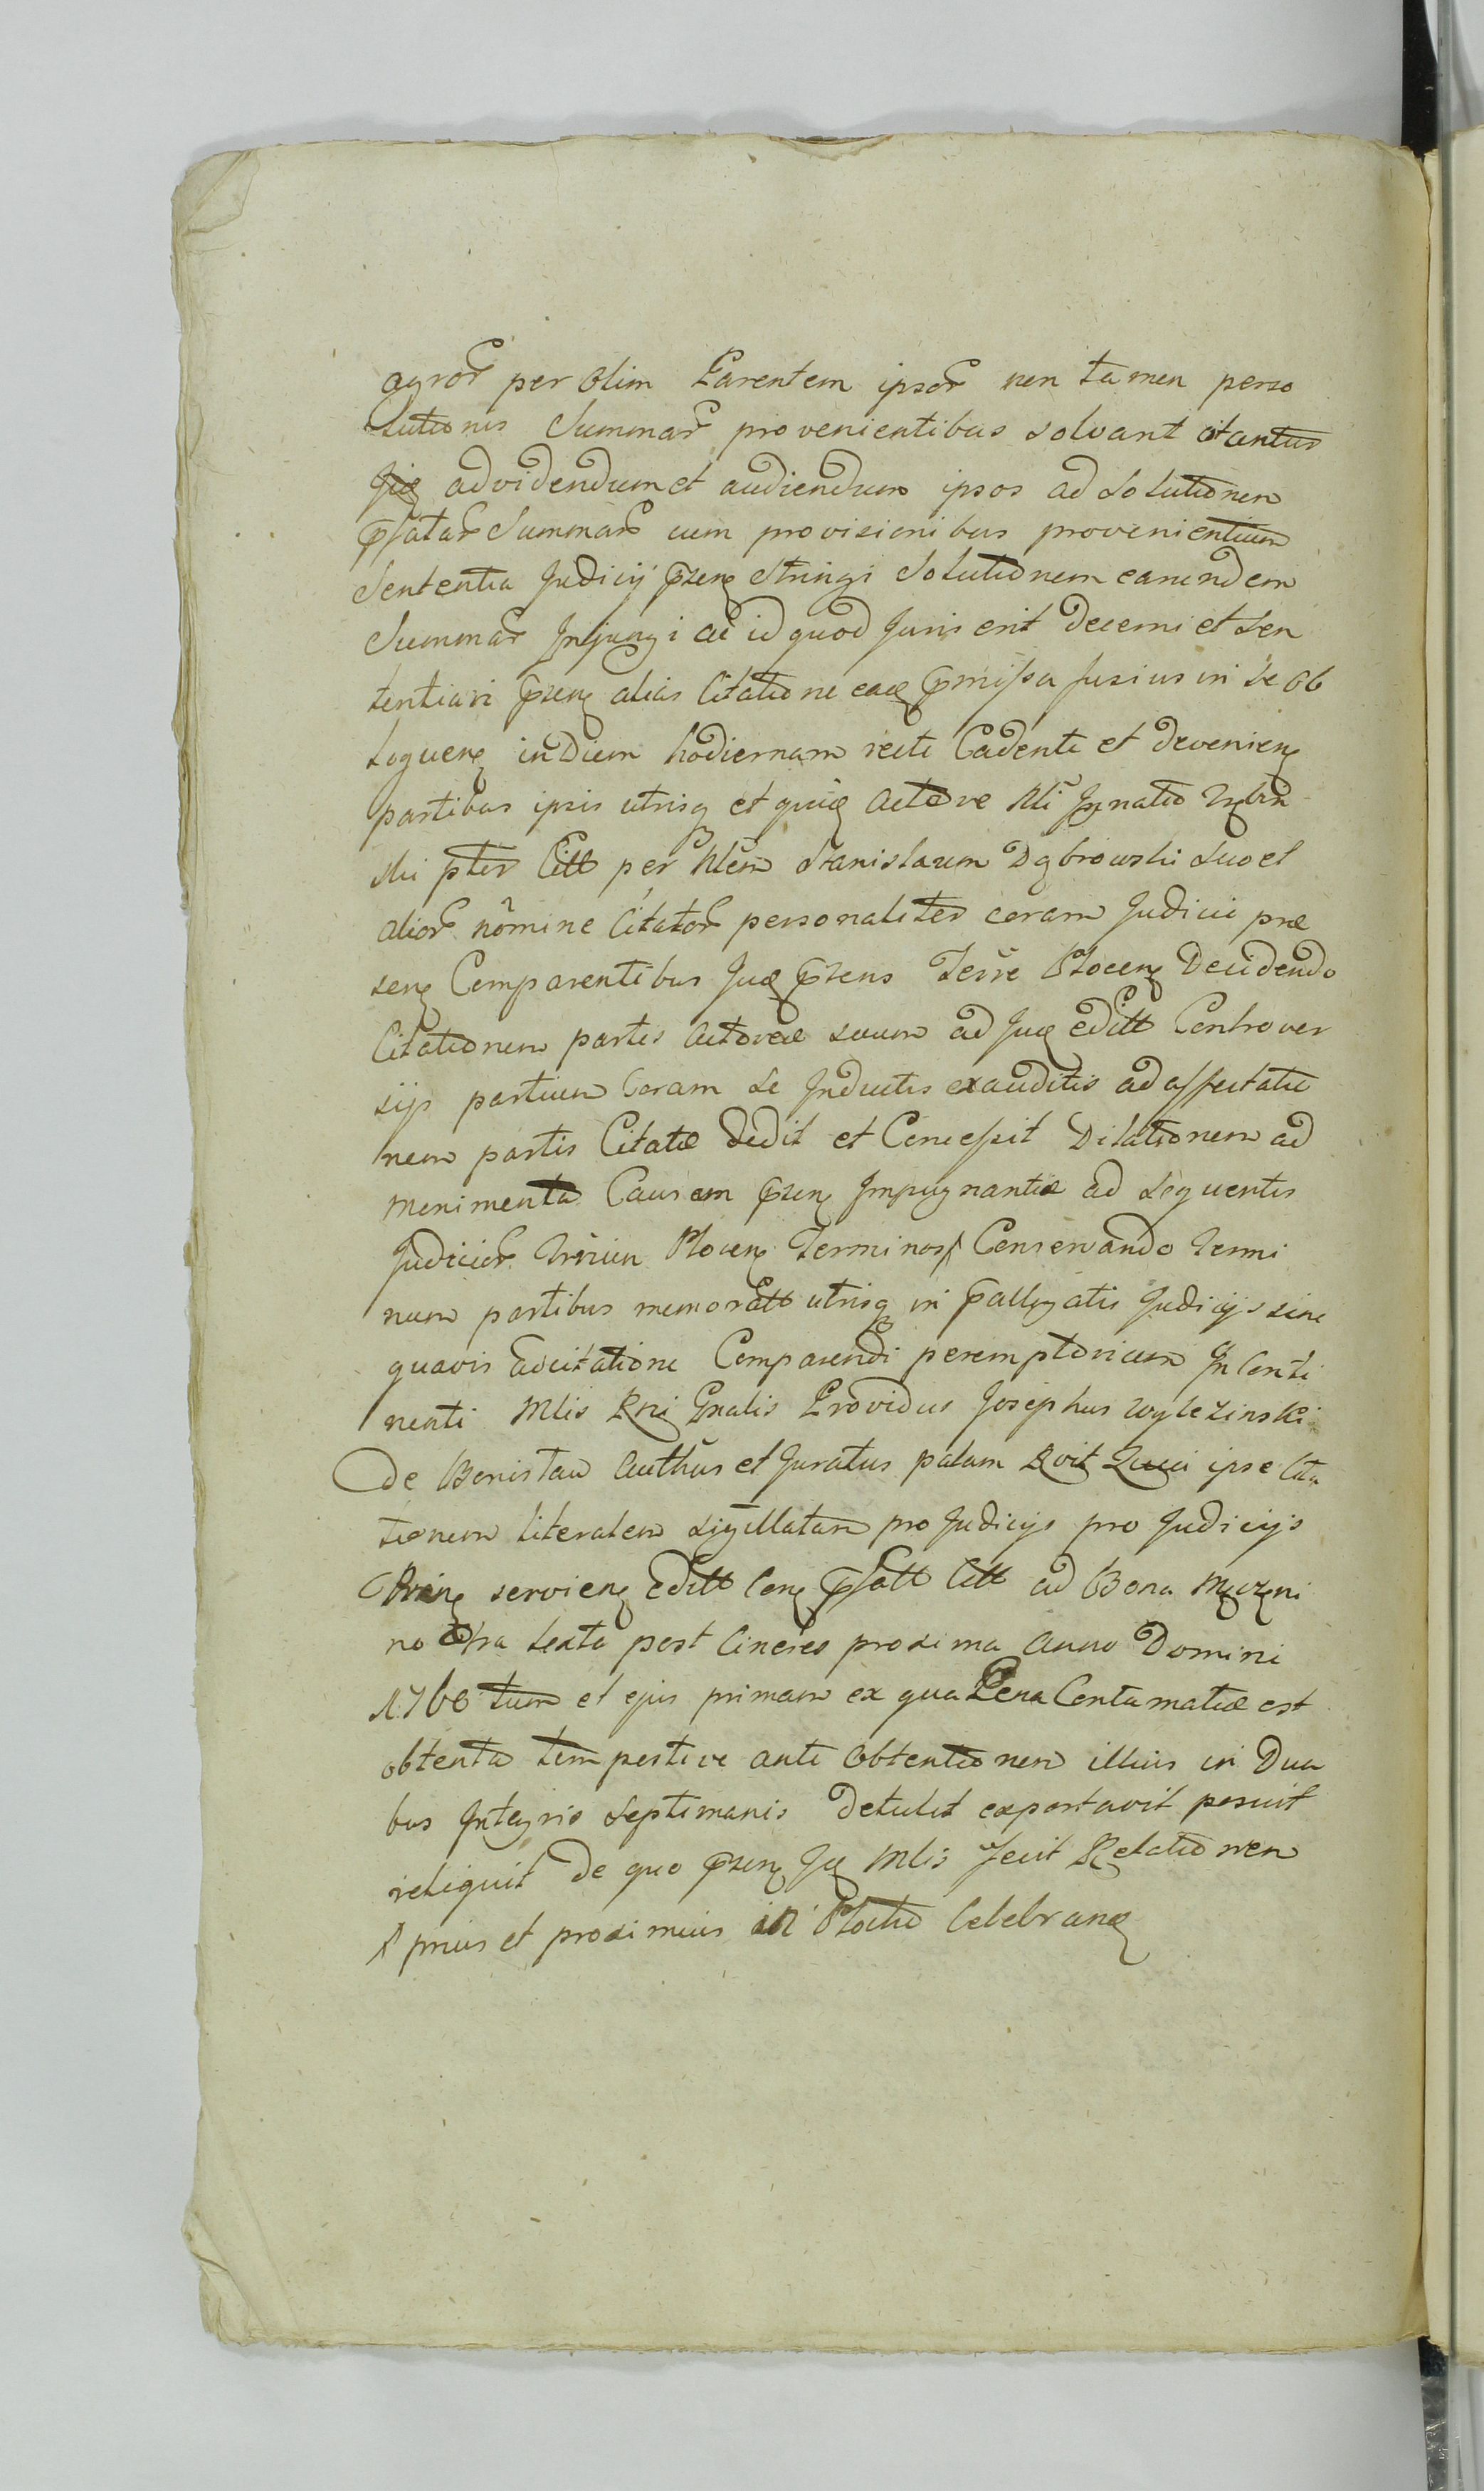 agror per olim Parentem ipsor non tamen perso
lutionis Summar provenientibus solvant citantus
ad videndum et audiendum ipsos ad Solutionem
pfatar Summar cum provisionibus provenientium
Sententia Judicij pzen Stringi Solutionem earundem
Summar Injungi ac id quod Juris erit decerni et Sen
tentiari pzen alias Citatione eaq pmissa fusius in se ob
loquen in Diem hodiernam recte Cadente et devenien
partibus ipsis utrisq et quidē Actore Ignatio
ski pter Citt per Stanislaum Dąbrowski suo et
alior nomine Citator personaliter coram Judicio præ
sen Comparentibus Judm pzens Terre Plocen Decidendo
Citationem partis Actoreæ suum ad Jud editt Controver
sijs partium Coram se Inductis exauditis ad affectatio
nem partis Citatæ dedit et Concessit Dilationem ad
Munimenta Causam pzen Impugnantia ad Sequentis
Judicior Plocen Terminos Conservando Termi
num partibus memoratt utrisq in pallegatis Judicijs sine
quavis adcitatione Comparendi peremptorium In Conti
nenti Mlis Rni Gnalis Providus Josephus Wylezinski
de Authus et Juratus palam Rvit Quia ipse Cita
tionem literalem sigillatam pro Judicijs pro Judicijs
servien editt Con pfatt Citt ad Bona
no fra sexta post Cineres proxima Anno Domini
1766 tum et ejus primam ex qua Pena Contumatiæ est
obtenta tempestive ante obtentionem illius in Dua
bus Integris Septimanis Detulit exportavit posuit
reliquit de quo pzen Mlis fecit Relationem
prius et proximius in Plocko Celebran